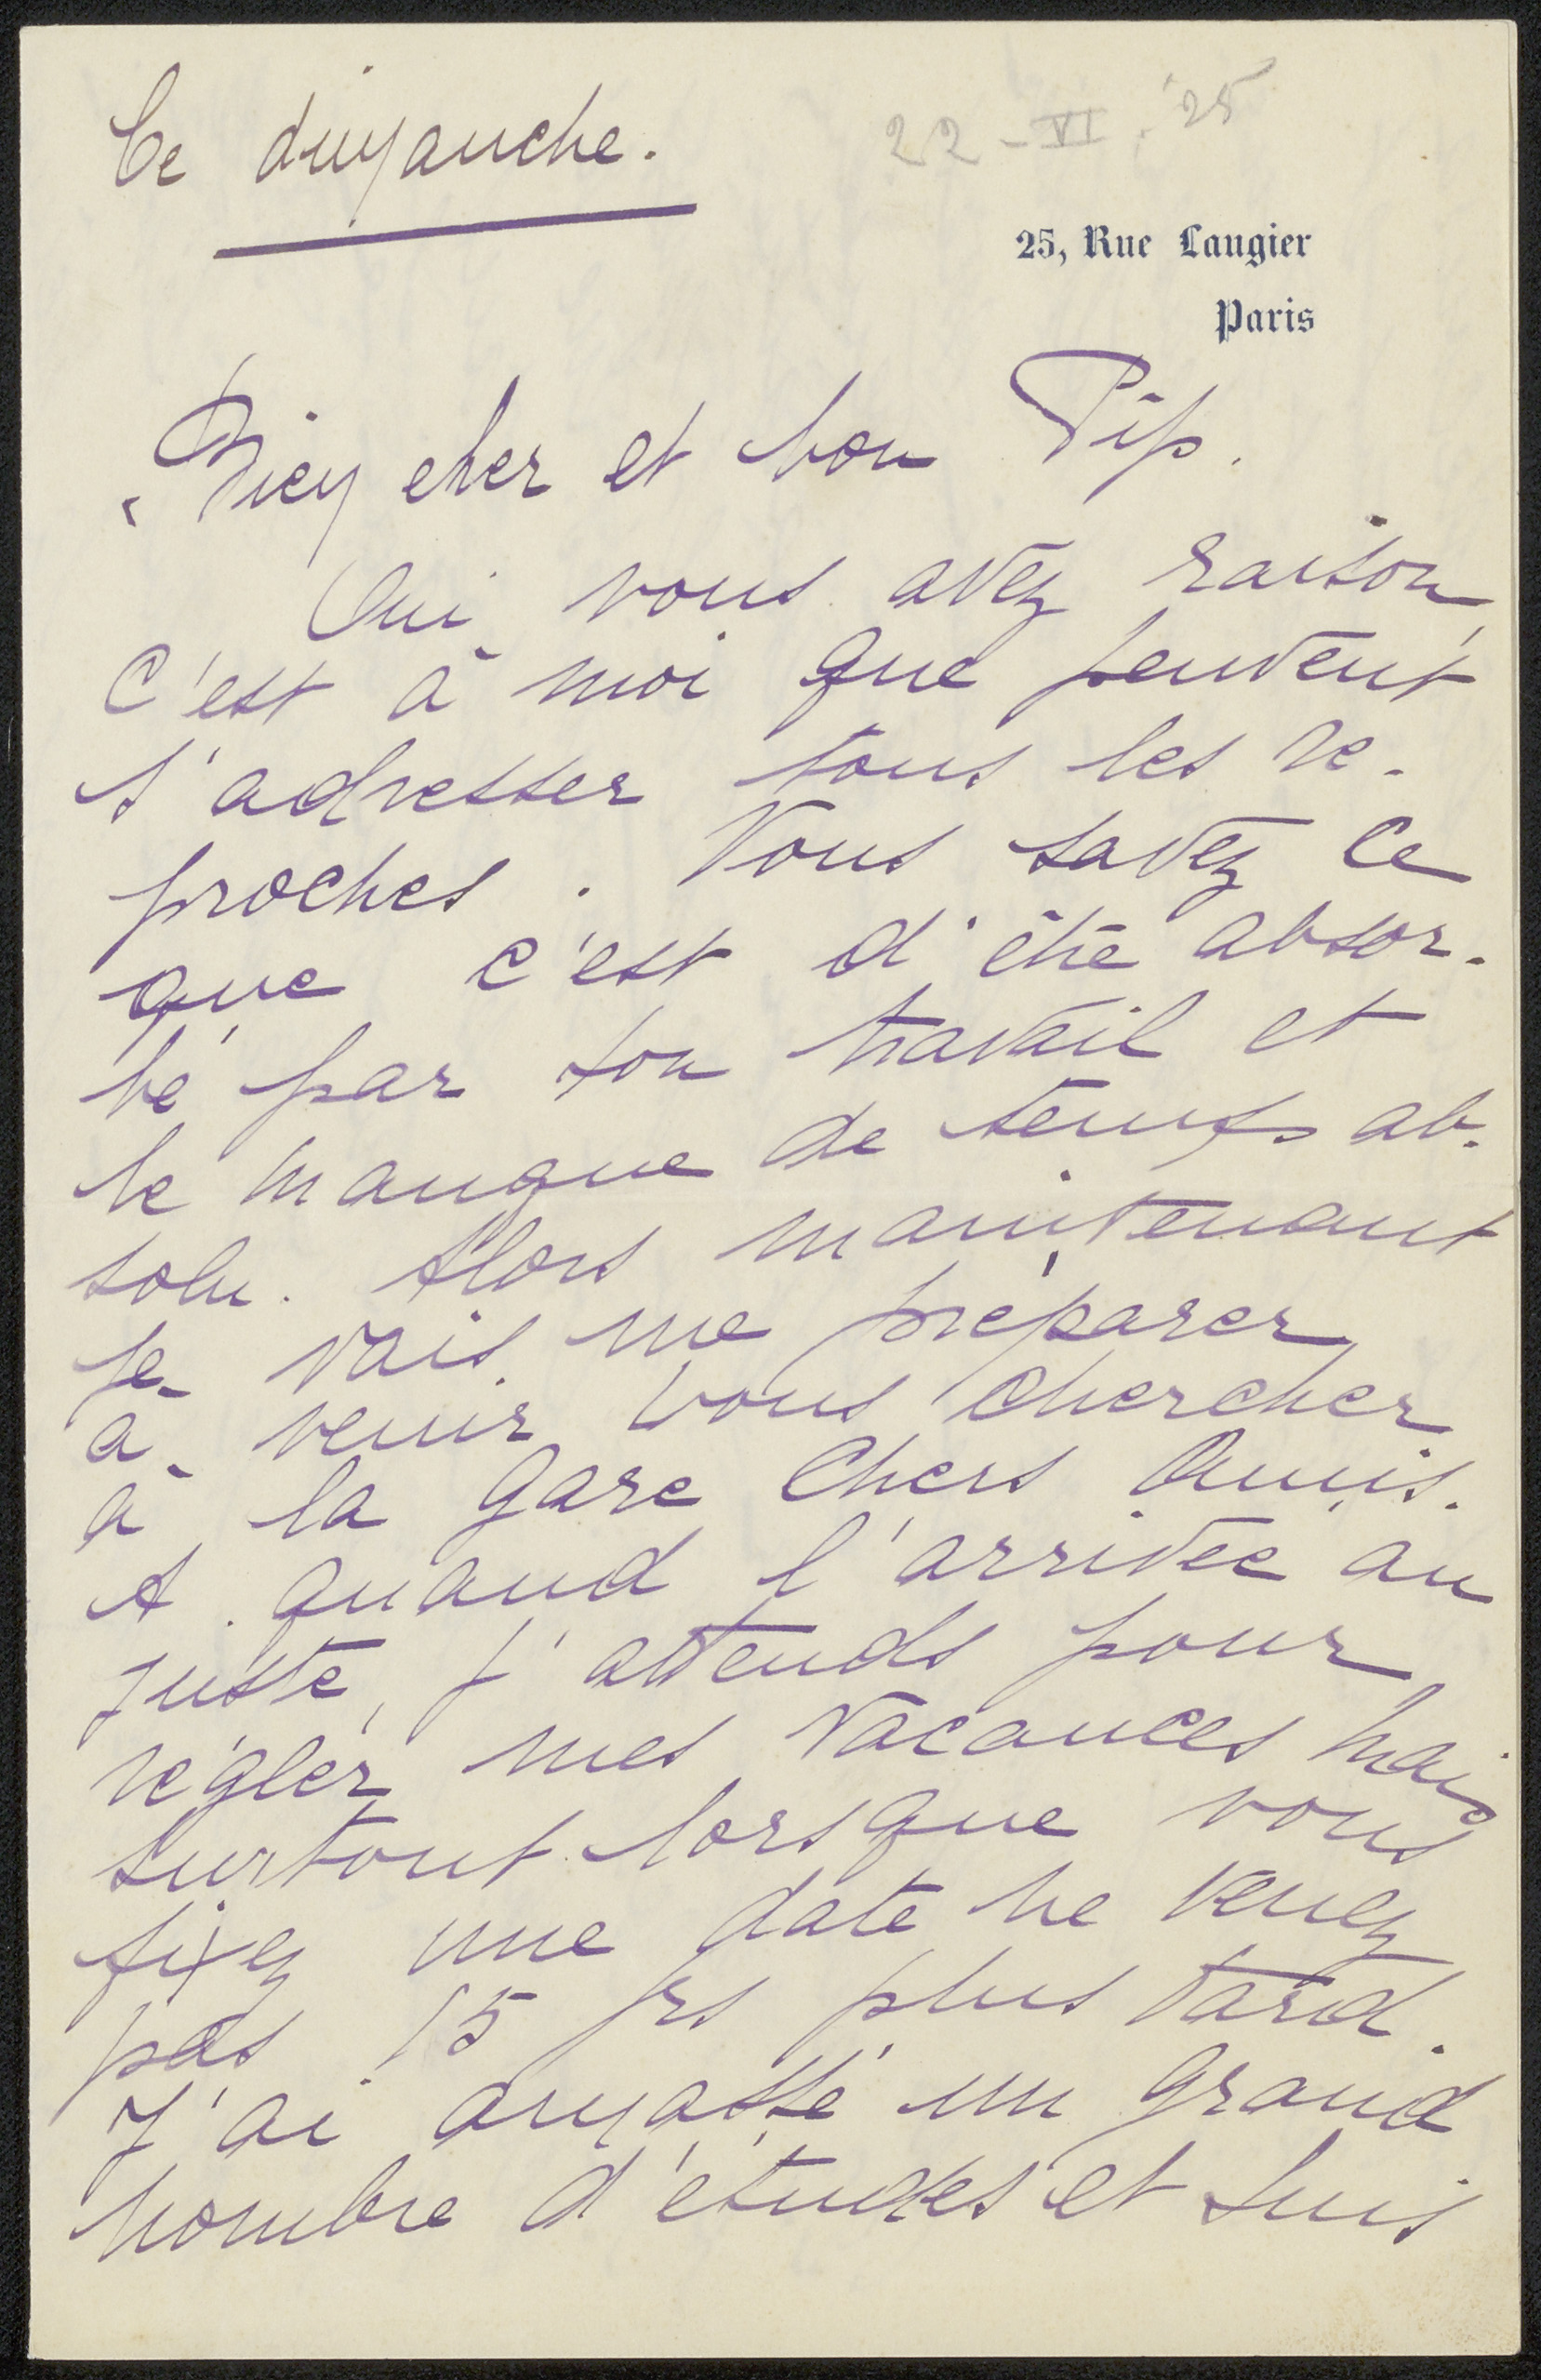 Ce dimanche.
22-VI.'25
25, Rue Laugier
Paris
Bien cher et bon Pip.
Oui vous avez raison,
c'est à moi que peuvent
s'adresser tous les re-
proches. Vous savez ce
que c'est d'être absor-
bé par son travail et
le manque de temps ab-
solu. Alors maintenant
je vais me préparer
à venir vous chercher
à la gare Chers Amis.
A quand l'arrivée au
juste, j'attends pour
régler mes vacances mais
surtout lorsque vous
fixez une date ne venez
pas 15 jrs plus tard.
J'ai amassé un grand
nombre d'études et suis